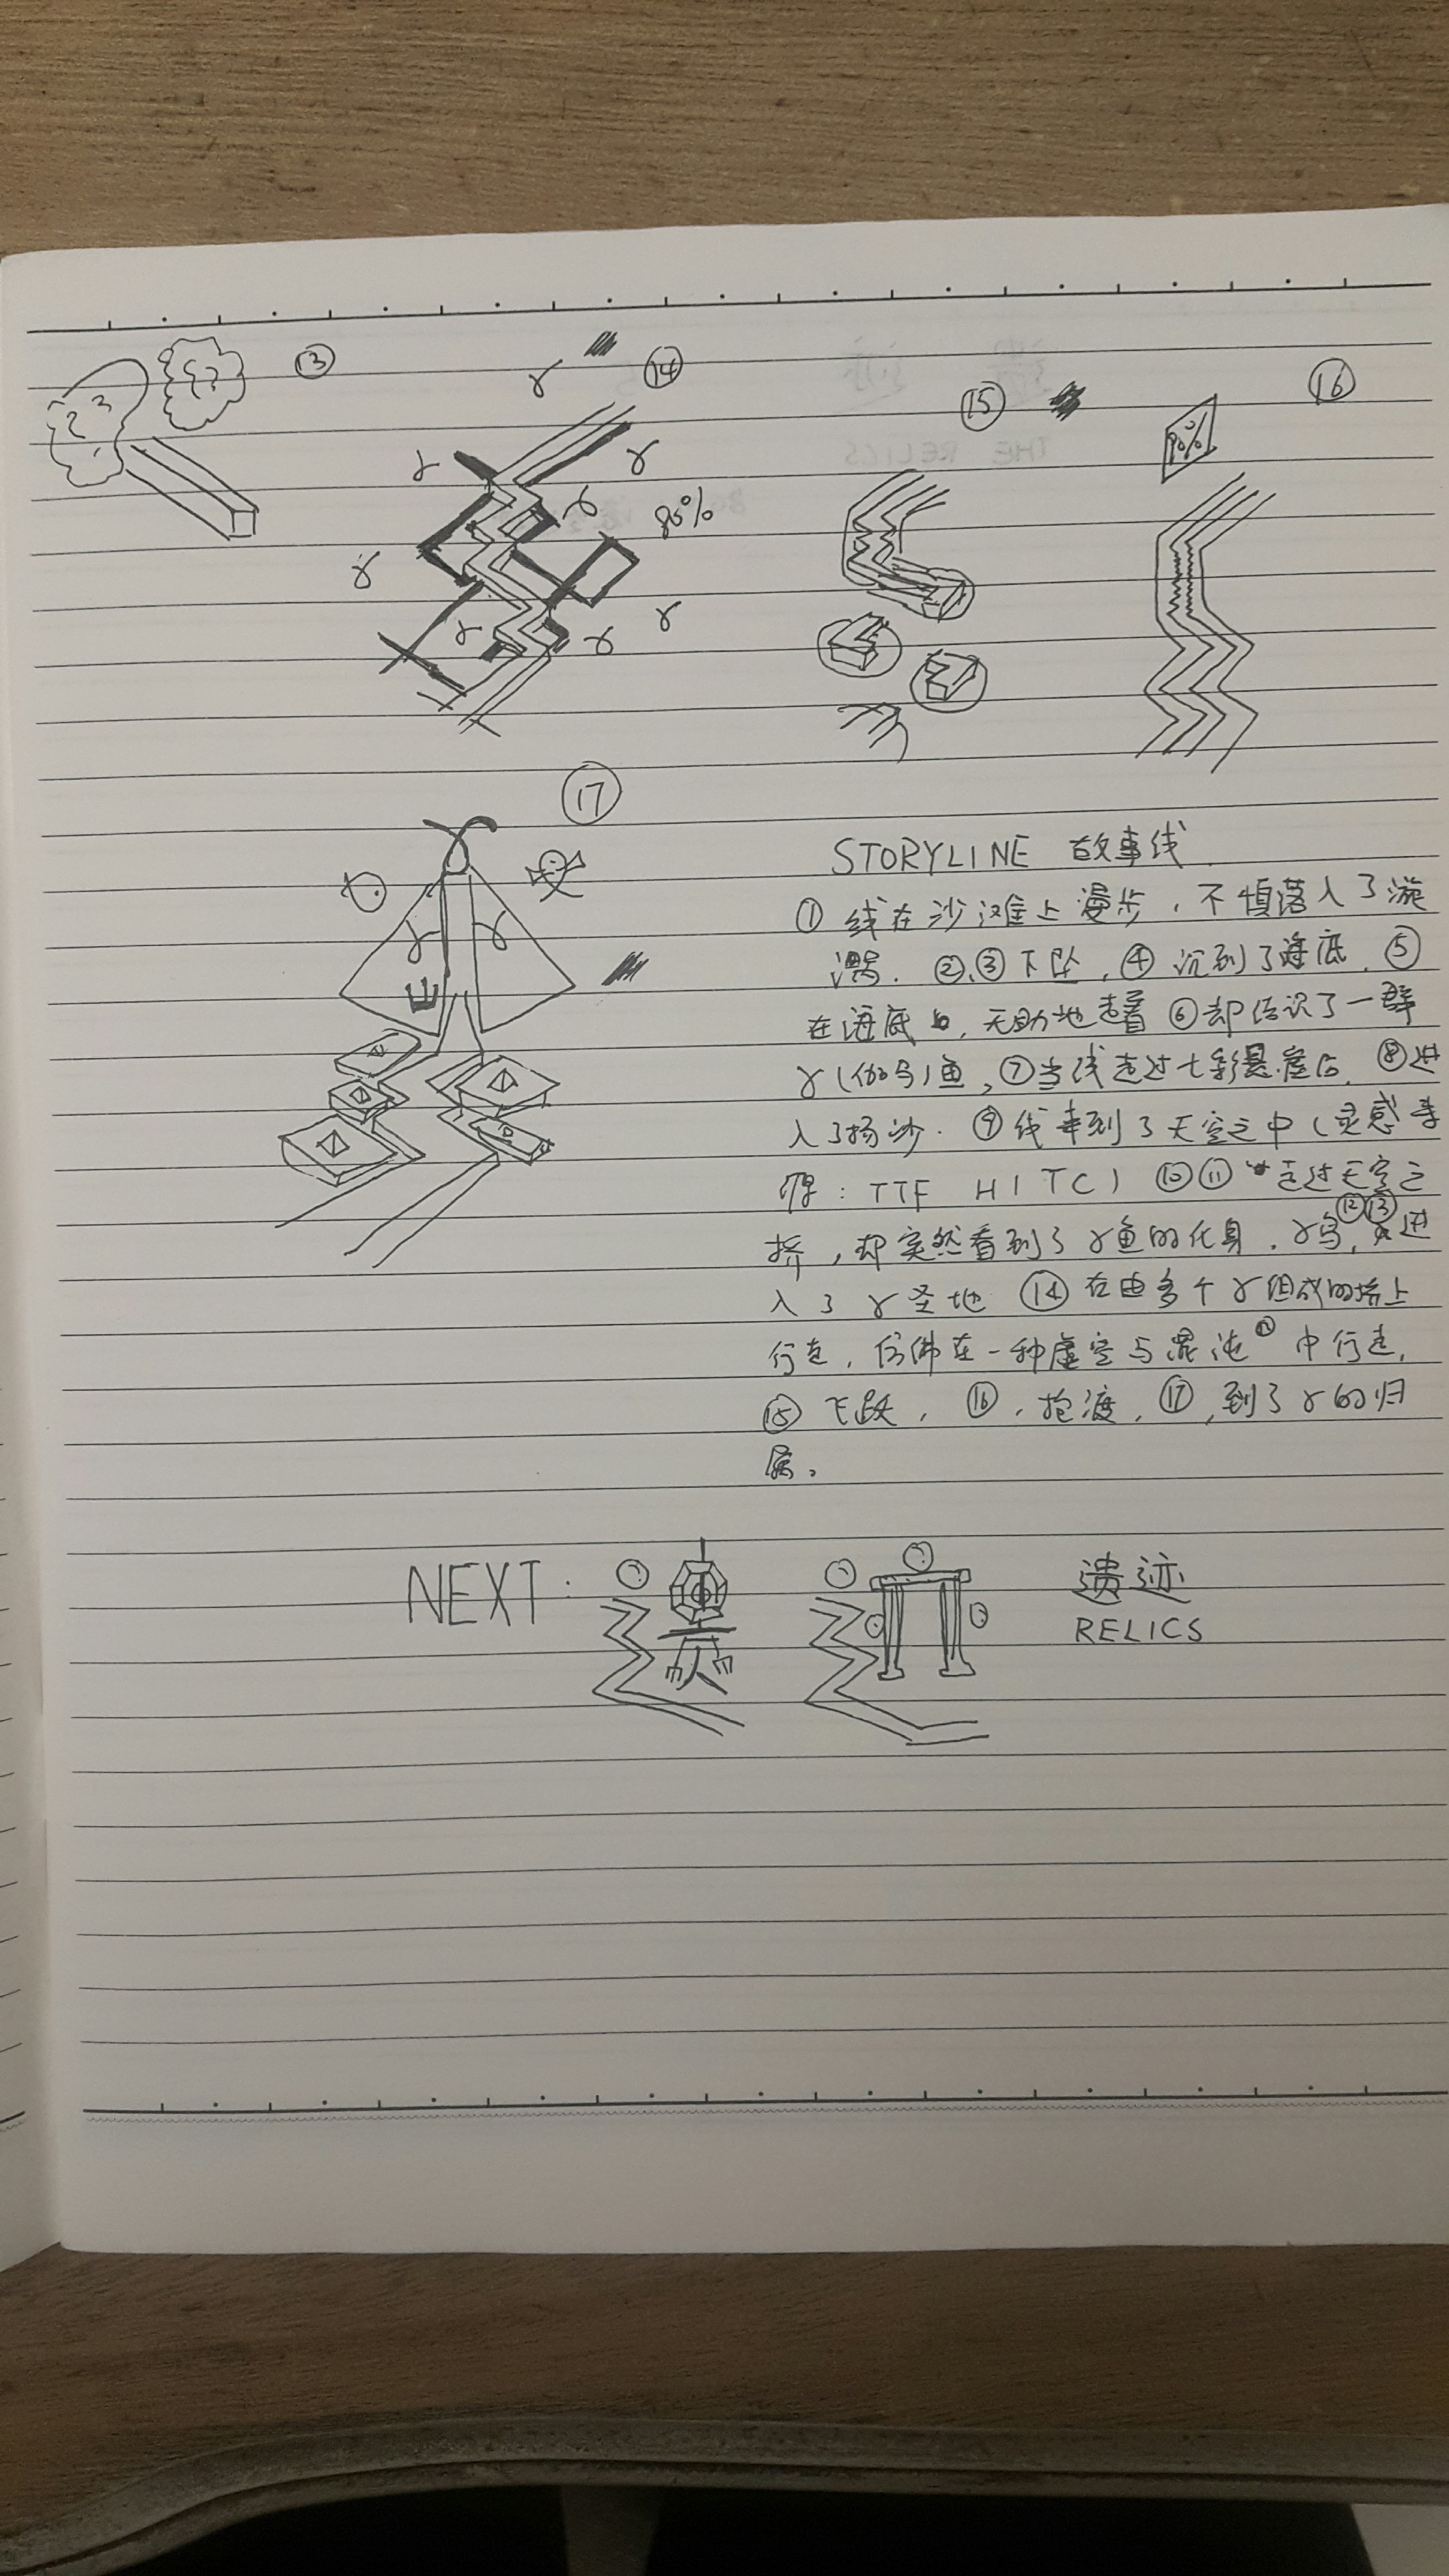 ⑬
⑭
γ
⑮
⑯
γ
γ
γ
80%
%
γ
γ
γ
γ
⑰
γ γ
山
STORYLINE 故事线
① 线在沙滩上漫步,不慎落入了漩
涡. ②,③下坠,④沉到了海底. ⑤
在海底,无助地走着⑥却结识了一群
γ(伽马)鱼,⑦当线走过七彩悬崖后. ⑧进
入了扬沙. ⑨线来到了天空之中(灵感来
源: TTF HITC) ⑩⑪走过天空之
桥,却突然看到了γ鱼的化身. γ鸟, ⑫⑬进
入了γ圣地 ⑭在由多个γ组成的桥上
行走,仿佛在一种虚空与混沌中行走,
⑮飞跃, ⑯,摆渡, ⑰,到了γ的归
属。
NEXT:
遗迹
RELICS